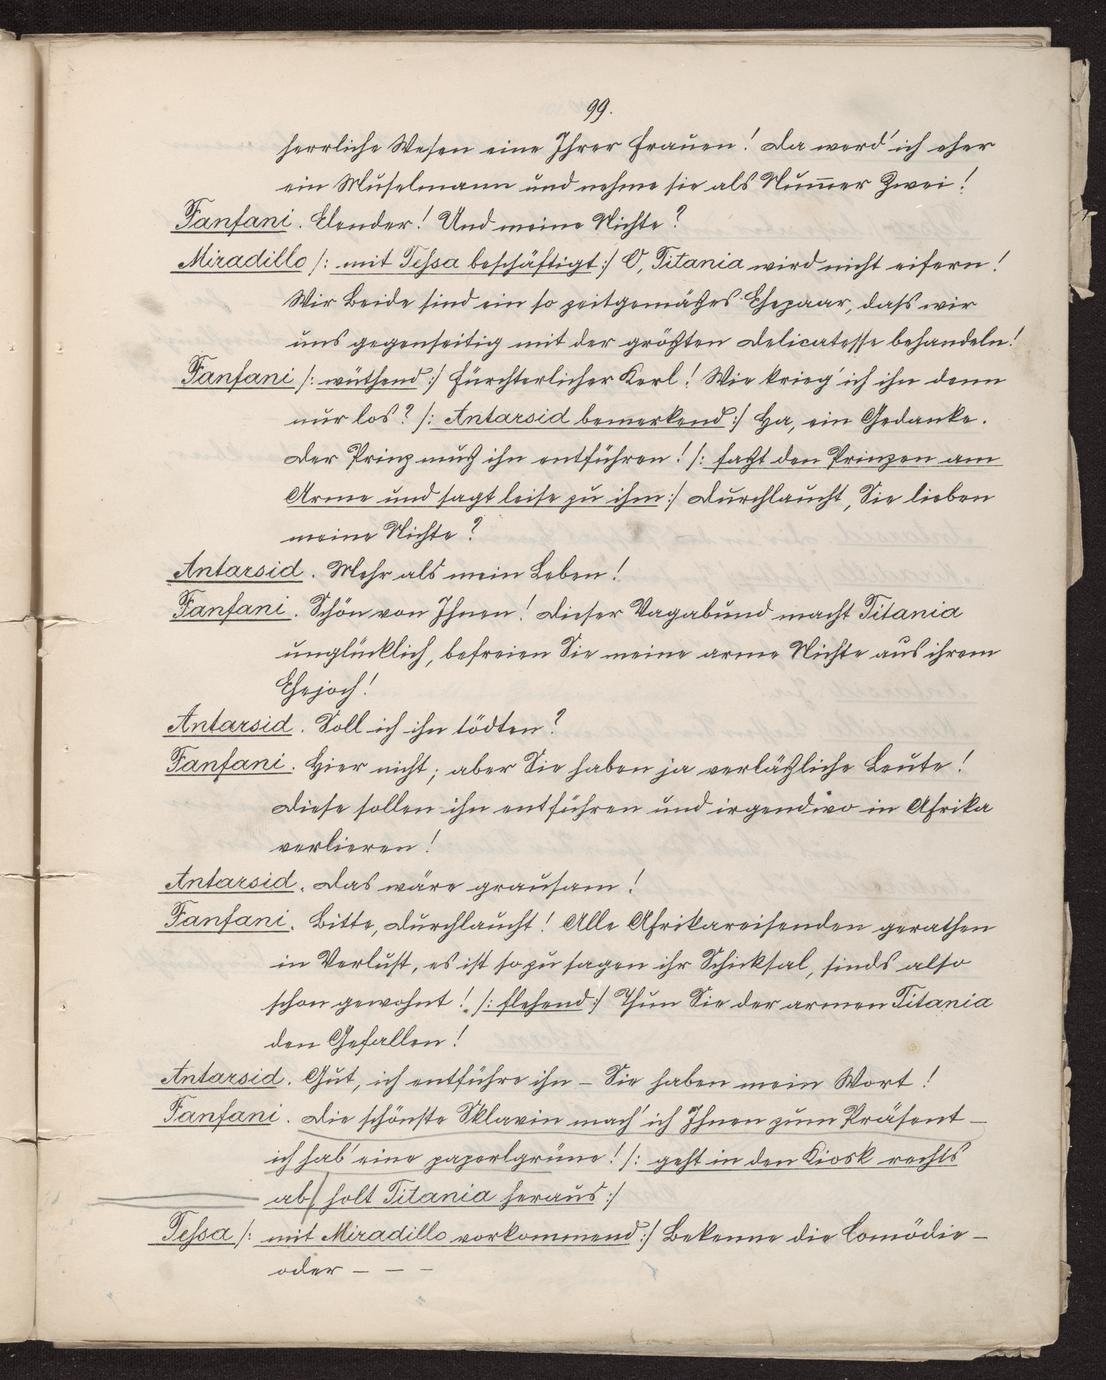 99.
herrliche Wesen eine Ihrer Frauen! Da werd' ich eher
ein Muselmann und nehme sie als Num̅er Zwei!
Fanfani. Elender! Und meine Nichte?
Miradillo /: mit Teſsa beschäftigt :/ O, Titania wird nicht eifern!
Wir Beide sind ein so zeitgemäßes Ehepaar, dass wir
uns gegenseitig mit der größten Delicatesse behandeln!
Fanfani /: wüthend :/ Fürchterlicher Kerl! Wie krieg' ich ihn denn
nur los? /: Antarsid bemerkend :/ Ha, ein Gedanke.
Der Prinz muß ihn entführen! /: faßt den Prinzen am
Arme und sagt leise zu ihm :/ Durchlaucht, Sie lieben
meine Nichte?
Antarsid. Mehr als mein Leben!
Fanfani. Schön von Ihnen! Dieser Vagabund macht Titania
unglücklich, befreien Sie meine arme Nichte aus ihrem
Ehejoch!
Antarsid. Soll ich ihn tödten?
Fanfani. Hier nicht; aber Sie haben ja verläßliche Leute!
Diese sollen ihn entführen und irgendwo in Afrika
verlieren!
Antarsid. Das wäre grausam!
Fanfani. Bitte, Durchlaucht! Alle Afrikareisenden gerathen
in Verlust, es ist so zu sagen ihr Schicksal, sinds also
schon gewohnt! /: flehend :/ Thun Sie der armen Titania
den Gefallen!
Antarsid. Gut, ich entführe ihn – Sie haben mein Wort!
Fanfani. Die schönste Sklavin mach' ich Ihnen zum Präsent –
ich hab' eine paperlgrüne! /: geht in den Kiosk rechts
ab/ holt Titania heraus :/
Teſsa /: mit Miradillo vorkommend :/ Bekenne die Comödie –
oder – – –